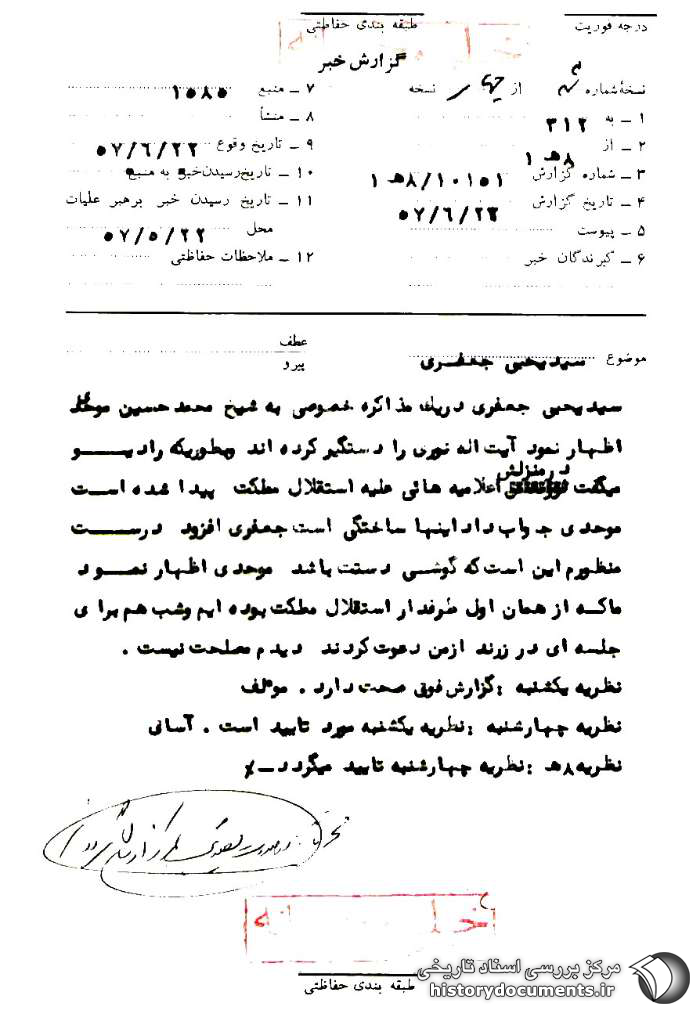 درجه فوریت
طبقه بندی حفاظتی
گزارش خبر
نسخه شماره از چهار نسخه
۱ ــ به ۳۱۲
۲ ــ از ۸هـ ۱
۳ ــ شماره گزارش ۱۰۱۵۱/۸هـ ۱
۴ ــ تاریخ گزارش ۵۷/۶/۲۳
۵ ــ پیوست
۶ ــ گیرندگان خبر
۷ ــ منبع ۱۰۸۵
۸ ــ منشأ
۹ ــ تاریخ وقوع ۵۷/۶/۲۲
۱۰ ــ تاریخ رسیدن خبر به منبع
۱۱ ــ تاریخ رسیدن خبر برهبر عملیات
محل ۵۷/۵/۲۲
۱۲ ــ ملاحظات حفاظتی
موضوع سید یحیی جعفری
عطف
پیرو
سید یحیی جعفری در یک مذاکره خصوصی به شیخ محمد حسین موحدی
اظهار نمود آیت اله نوری را دستگیر کرده اند و بطوریکه رادیـــو
میگفت در منزلش اعلامیه هائی علیه استقلال مملکت پیدا شده است
موحدی جواب داد اینها ساختگی است جعفری افزود درســـت
منظورم این است که گوشی دستت باشد موحدی اظهار نمـود
ما که از همان اول طرفدار استقلال مملکت بوده ایم و شب هم برای
جلسه ای در زرند از من دعوت کردند دیدم مصلحت نیست .
نظریه یکشنبه : گزارش فوق صحت دارد . موءلف
نظریه چهارشنبه : نظریه یکشنبه مورد تایید است . آسانی
نظریه ۸هـ : نظریه چهارشنبه تایید میگردد ــ ٪
طبقه بندی حفاظتی
مرکز بررسی اسناد تاریخی
historydocuments.ir